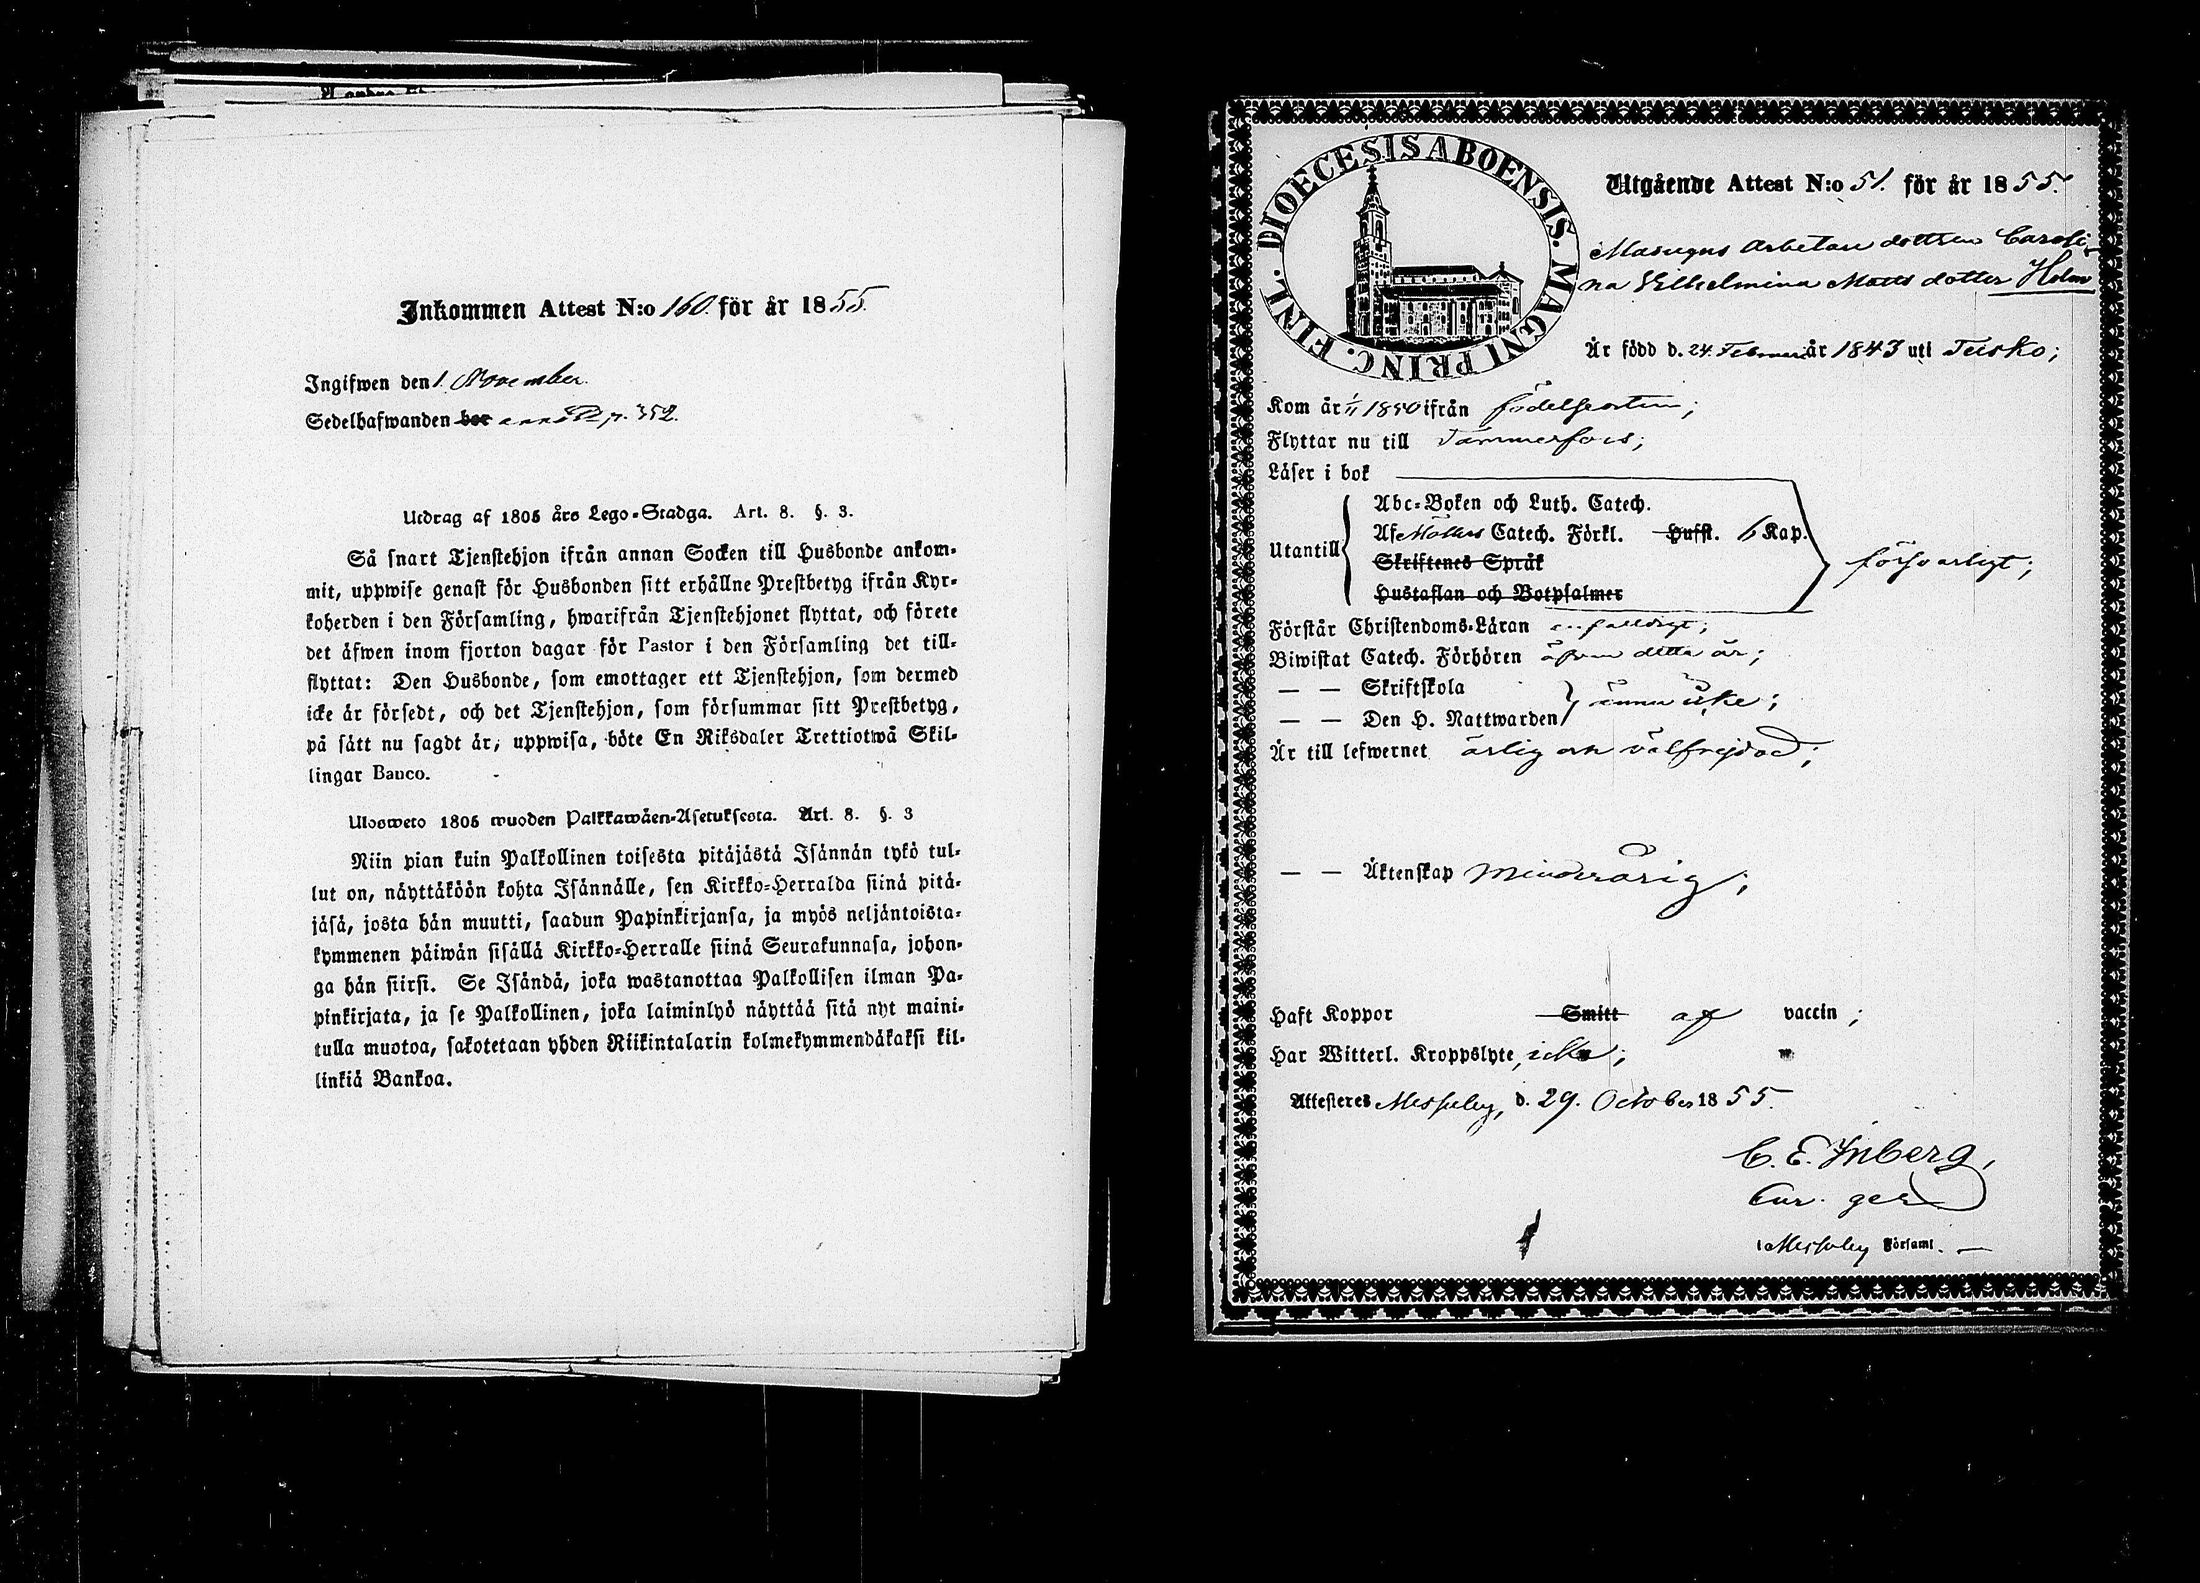 Inkommen Attest N:o 160. för år 1855.
Ingifwen den 1. November.
Sedelhafwanden bor p. 352.
Utdrag af 1805 års Lego-Stadga. Art. 8. §. 3.
Så snart Tjenstehjon ifrån annan Socken till Husbonde ankom-
mit, uppwise genast för Husbonden sitt erhållne Prestbetyg ifrån Kyr-
koherden i den Församling, hwarifrån Tjenstehjonet flyttat, och förete
det äfwen inom fjorton dagar för Pastor i den Församling det till-
flyttat: Den Husbonde, som emottager ett Tjenstehjon, som dermed
icke är försedt, och det Tjenstehjon, som försummar sitt Prestbetyg,
på sätt nu sagdt är, uppwisa, böte En Riksdaler Trettiotwå Skil-
lingar Banco.
Ulosweto 1805 wuoden Palkkawäen-Asetuksesta. Art. 8. §. 3
Niin pian kuin Palkollinen toisesta pitäjästä Isännän tykö tul-
lut on, näyttäköön kohta Isännälle, sen Kirkko-Herralda siinä pitä-
jäsä, josta hän muutti, saadun Papinkirjansa, ja myös neljäntoista-
kymmenen päiwän sisällä Kirkko-Herralle siinä Seurakunnasa, johon-
ga hän siirsi. Se Isändä, joka wastanottaa Palkollisen ilman Pa-
pinkirjata, ja se Palkollinen, joka laiminlyö näyttää sitä nyt maini-
tulla muotoa, sakotetaan yhden Riikintalarin kolmekymmendäkaksi kil-
linkiä Bankoa.
DIOECESIS ABOENSIS. MAGNI PRINC. FINL.
Utgående Attest N:o 51. för år 1855.
Masugns Arbetare dottren Caroli-
na Vilhelmina Matts dotter Holm
Är född d. 24. Februari år 1843 uti Teisko;
Kom år 1/11 1850 ifrån födelseorten;
Flyttar nu till Tammerfors;
Läser i bok
Utantill
Abc-Boken och Luth. Catech.
Af Möllers Catech. Förkl. Hufst. 6 Kap.
Skriftenes Språk
Hustaflan och Botpsalmer
försvarligt;
Förstår Christendoms-Läran enfalldigt;
Biwistat Catech. Förhören äfven detta år;
— — Skriftskola
— — Den H. Nattwarden ännu icke;
Är till lefwernet ärlig och välfrejdad;
— — Äktenskap Minderårig;
Haft Koppor Smitt af vaccin;
Har Witterl. Kroppslyte, icke;
Attesteres Messuby, d. 29. October 1855.
C. E. Inberg,
Cur. ger
i Messuby Församl. —